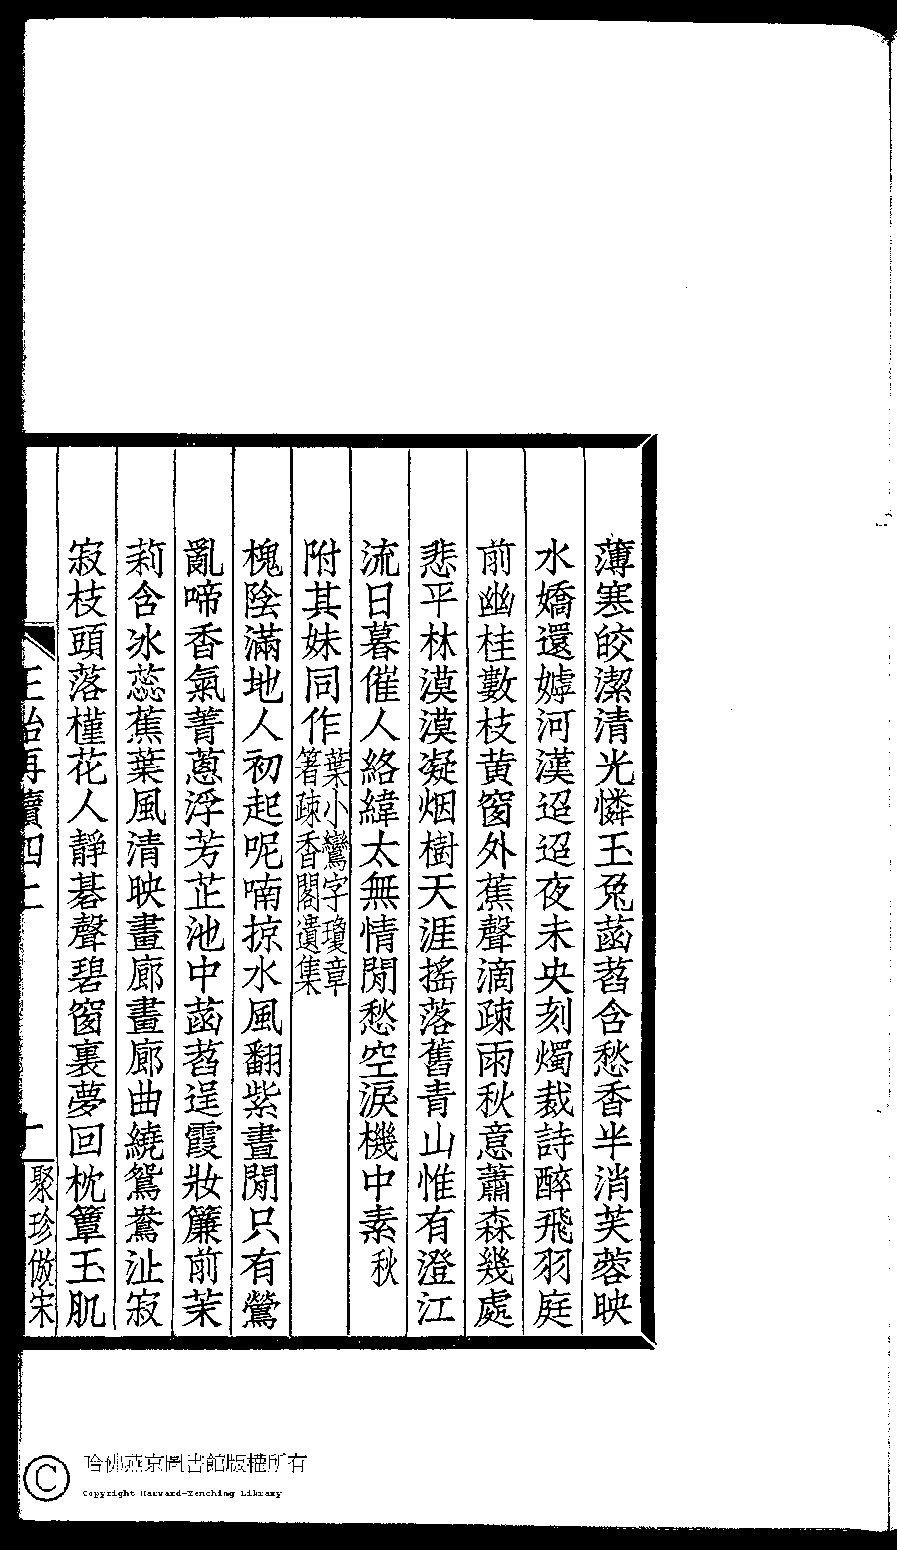 薄寒皎潔清光憐玉兔菡萏含愁香半消芙蓉映
水嬌還嫭河漢迢迢夜未央刻燭裁詩醉飛羽庭
前幽桂數枝黄窗外蕉聲滴疎雨秋意蕭森幾處
悲平林漠漠凝烟樹天涯搖落舊青山惟有澄江
流日暮催人絡緯太無情閒愁空淚機中素秋
附其妹同作葉小鸞字瓊章
箸疎香閣遺集
槐陰滿地人初起呢喃掠水風翻紫晝閒只有鶯
亂啼香氣菁蔥浮芳芷池中菡萏逞霞妝簾前茉
莉含冰蕊蕉葉風清映畫廊畫廊曲繞鴛鴦沚寂
寂枝頭落槿花人靜棊聲碧窗裏夢回枕簟玉肌
聚珍倣宋
哈佛燕京圖書館版權所有
Copyright Harvard-Yenching Library